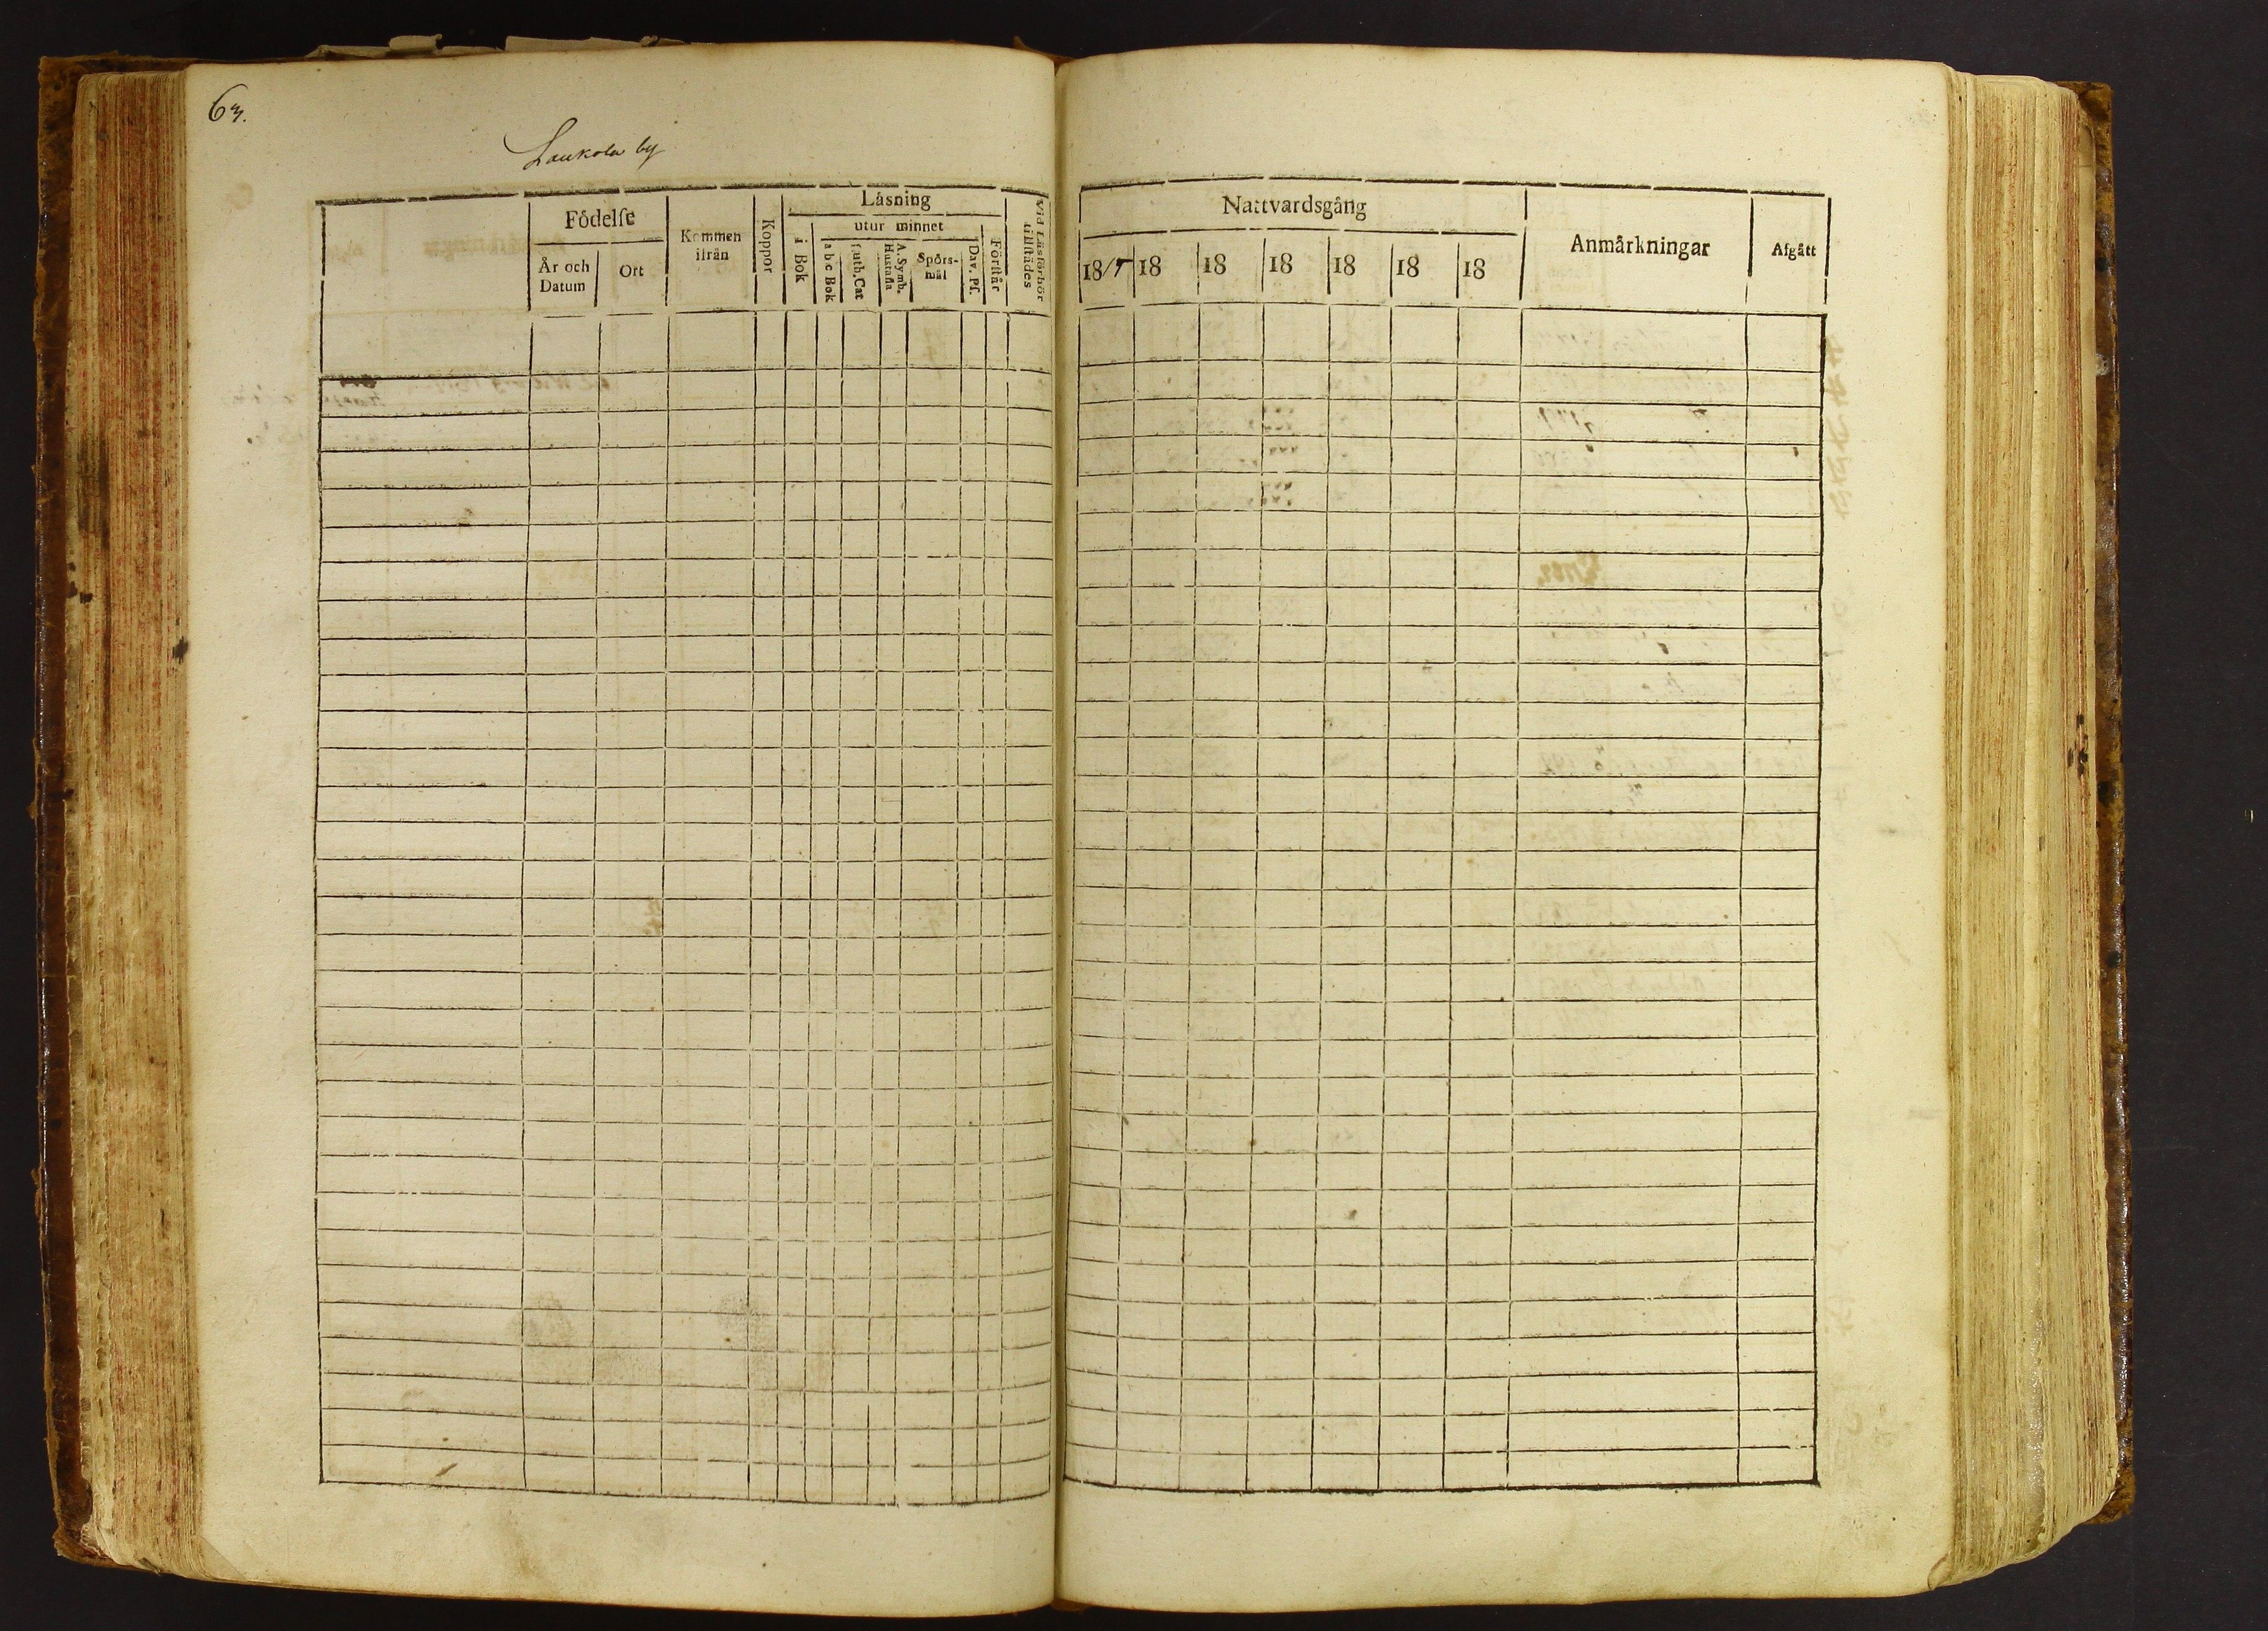 63.
Laukola by
Födelse
År och Datum
Ort
Kommen ifrån
Koppor
Läsning
i Bok
utur minnet
a b c Bok
Luth. Cat
A. Symb. Hustafla
Spörs-mål
Dav. Pſ.
Förſtår
Vid Läsförhör tillſtädes
Nattvardsgång
18/7
18
18
18
18
18
18
Anmärkningar
Afgått